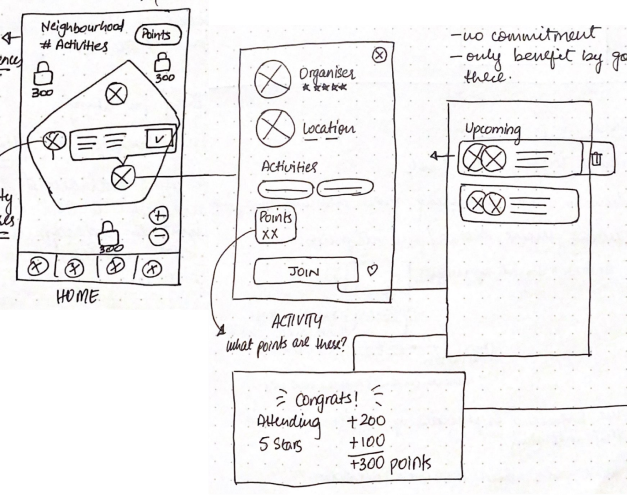 Neighbourhood
# Activities
Points
300
300
300
HOME
Organiser
*****
Location
Activities
Points
XX
JOIN
ACTIVITY
what points are these?
-no commitment
-only benefit by go
there.
Upcoming
Congrats!
Attending +200
5 Stars +100
+300 points